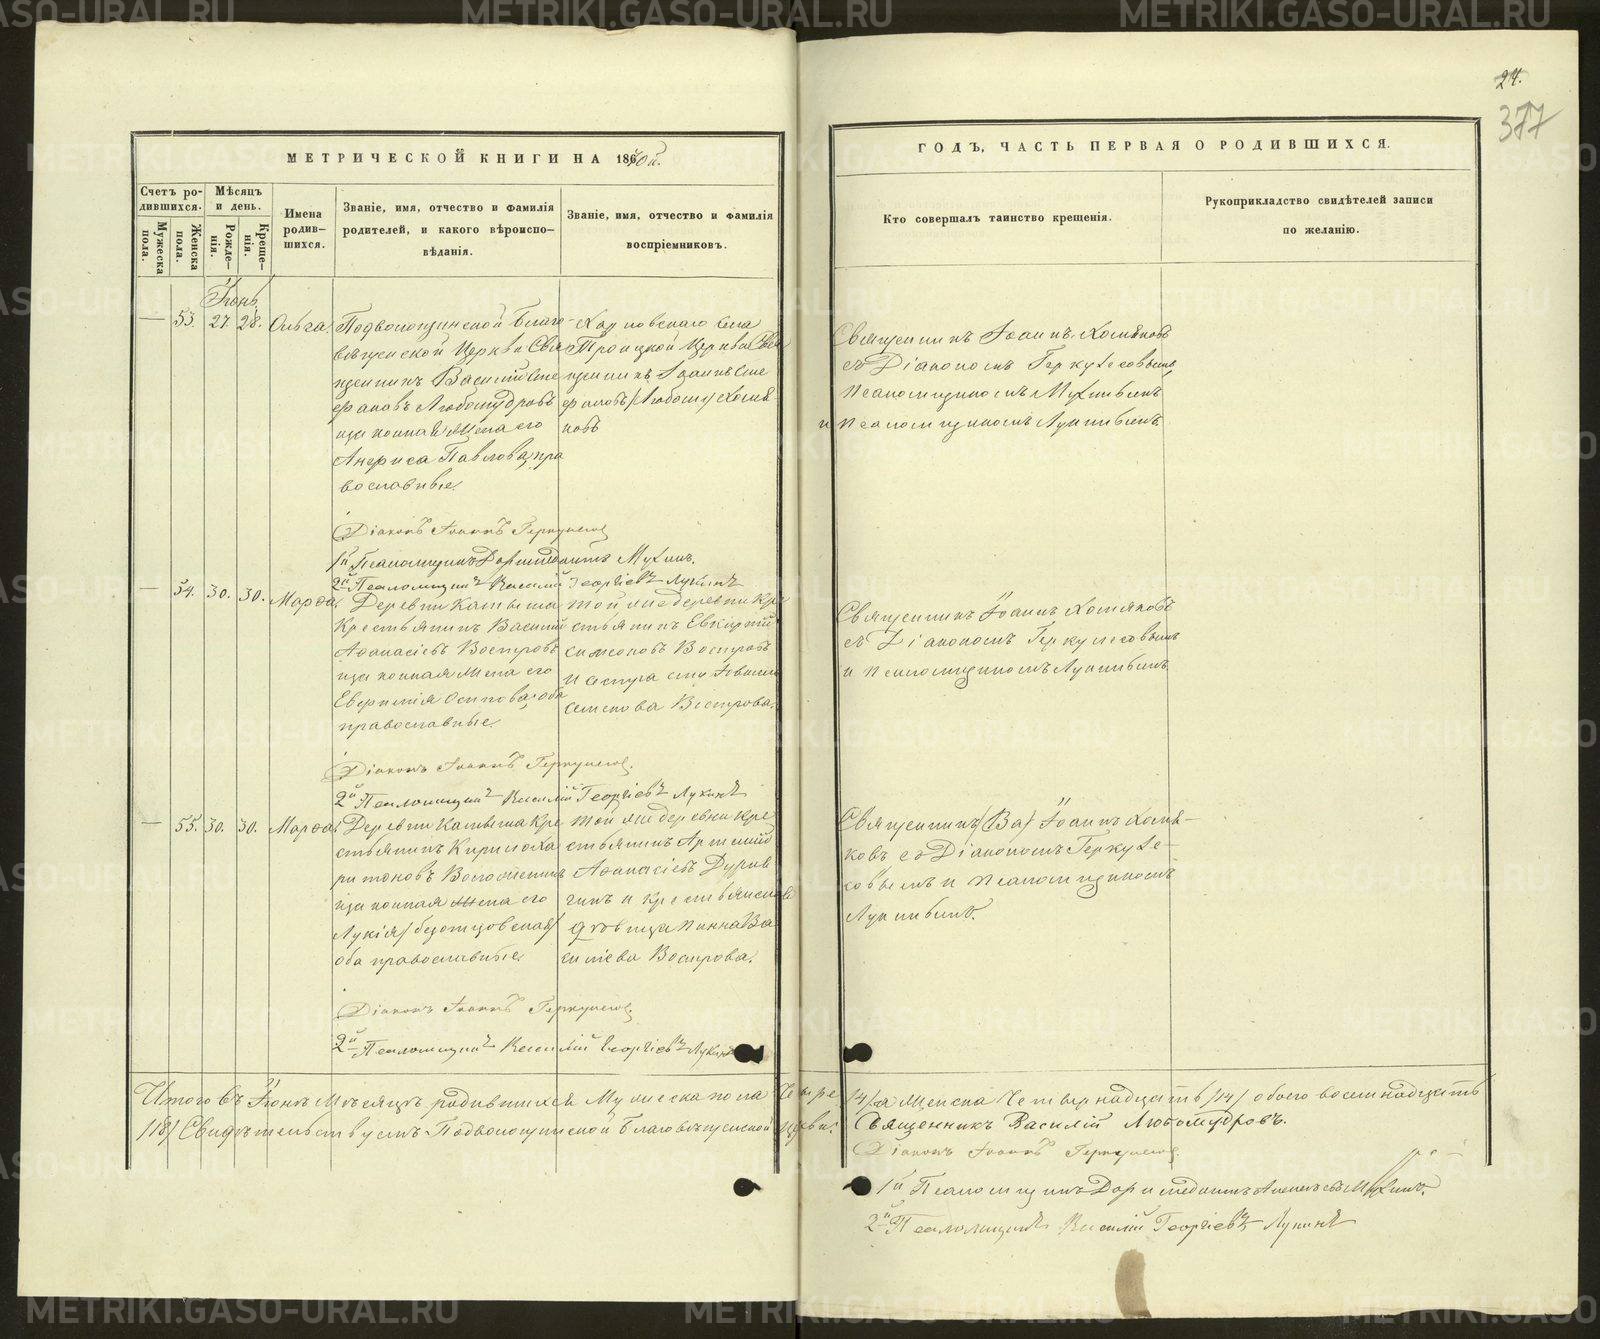 24.
377
МЕТРИЧЕСКОЙ КНИГИ НА 1860й.
Счетъ родившихся.
Мужеска пола.
Женска пола.
Мѣсяцъ и день.
Рожденія.
Крещенія.
Имена родившихся.
Званіе, имя, отчество и фамилія родителей, и какого вѣроисповѣданія.
Званіе, имя, отчество и фамилія воспріемниковъ.
ГОДЪ, ЧАСТЬ ПЕРВАЯ О РОДИВШИХСЯ.
Кто совершалъ таинство крещенія.
Рукоприкладство свидѣтелей записи по желанію.
Іюнь
— 53. 27. 28. Ольга
Подволошинской Благо-
вѣщенской Церкви Свя
щенникъ Василій Сте
фановъ Любомудровъ
и законная Жена его
Павлова, пра
вославные.
Села
Троицкой Церкви Свя
щенникъ Іоаннъ Сте
фановъ /Любому/ Хомя-
ковъ
Священникъ Іоаннъ Хомяковъ
съ Діакономъ Геркулесовымъ
Псаломщикомъ Мухинымъ
и Псаломщикомъ Лукинымъ.
Діаконъ Іоаннъ Геркулесовъ
1й Псаломщикъ Доримедонтъ Мухинъ.
2й Псаломщикъ Василій Георгіевъ Лукинъ
— 54. 30. 30. Марѳа.
Деревни Камыша
Крестьянинъ Василій
Аѳанасіевъ Востровъ
и законная Жена его
Евѳимія Осипова, оба
православные.
той же деревни Кре
стьянинъ
Симоновъ Востровъ
и сестра
Семенова Вострова.
Священникъ Іоаннъ Хомяковъ
съ Діакономъ Геркулесовымъ
и Псаломщикомъ Лукинымъ.
Діаконъ Іоаннъ Геркулесовъ.
2й Псаломщикъ Василій Георгіевъ Лукинъ
— 55. 30. 30. Марѳа.
Деревни Камыша Кре
стьянинъ Кирилъ Ха
ритоновъ
и законная Жена его
Лукія /безотцовская/
оба православные.
той же деревни Кре
стьянинъ Артемій
Аѳанасіевъ
и крестьянская
дѣвица Ва
сильева Вострова.
Священникъ /Ва/ Іоаннъ Хомя-
ковъ съ Діакономъ Геркуле-
совымъ и Псаломщикомъ
Лукинымъ.
Діаконъ Іоаннъ Геркулесовъ.
2й Псаломщикъ Василій Георгіевъ Лукинъ
Итого въ Іюнѣ Мѣсяцѣ родившихся Мужеска пола Четыре /4/ а Женска Четырнадцать /14/ обоего восемнадцать
/18/ Свидѣтельствуемъ Подволошинской Благовѣщенской Церкви: Священникъ Василій Любомудровъ.
Діаконъ Іоаннъ Геркулесовъ.
1й Псаломщикъ Доримедонтъ Алексѣевъ Мухинъ.
2й Псаломщикъ Василій Георгіевъ Лукинъ
METRIKI.GASO-URAL.RU